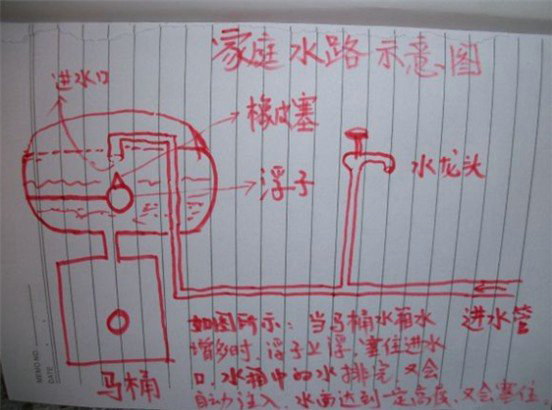 家庭水路示意图
进水口
橡皮塞
浮子
水龙头
进水管
马桶
如图所示：当马桶水箱水
增多时，浮子上浮，塞住进水
口，水箱中的水排完，又会
自动注入，水面达到一定高度，又会塞住，
MEMO NO.
DATE